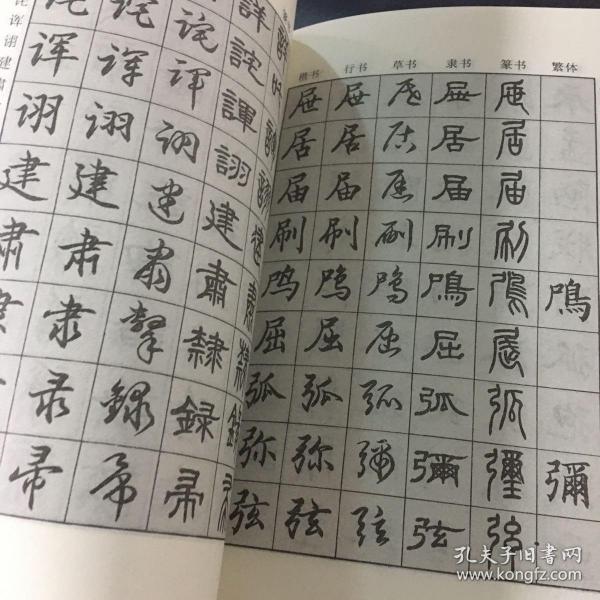 诨
诩
建
肃
诧 诧 詫
诨 诨 诨 諢
诩 诩 诩 詡
建 建 建 建
肃 肃 肃 肅
隶 隶 隸
录 録 録
帚 帚 帚
楷书 行书 草书 隶书 篆书 繁体
屉 屉 屉 屉 屉
居 居 居 居 居
届 届 届 届 届
刷 刷 刷 刷 刷
鸤 鸤 鸤 鳲 鳲 鳲
屈 屈 屈 屈 屈
弧 弧 弧 弧 弧
弥 弥 彌 彌 彌 彌
弦 弦 弦 弦 弦
孔夫子旧书网
www.kongfz.com